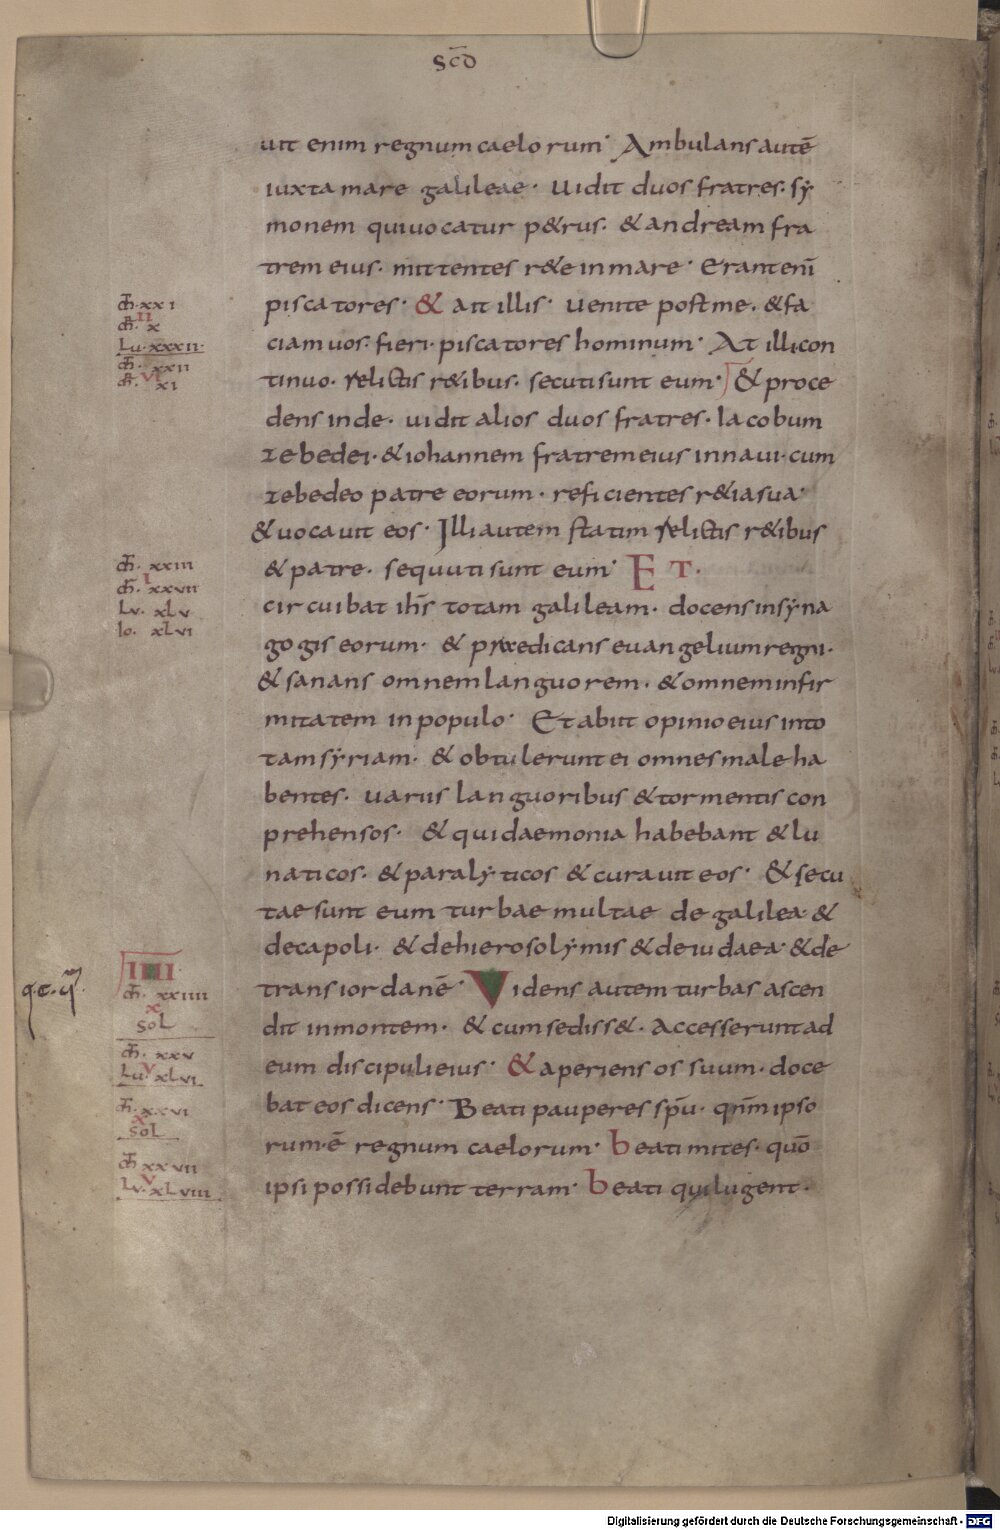 sc̄d
uit enim regnum caelorum· Ambulans autē
iuxta mare galileae· uidit duos fratres· sẏ
monem qui uocatur p&rus· & andream fra
trem eius· mittentes r&e in mare· Erant eni̅
piscatores· & ait illis· uenite post me· & fa
ciam uos· fieri· piscatores hominum· At illi con
tinuo· relictis r&ibus· secuti sunt eum· & proce
dens inde· uidit alios duos fratres· Iacobum
zebedei· & iohannem fratrem eius in naui· cum
zebedeo patre eorum· reficientes r&ia sua·
& uocauit eos· Illi autem statim relictis r&ibus
& patre· sequuti sunt eum· ET·
circuibat ih̅s totam galileam· docens in sẏna
gogis eorum· & praedicans euangelium regni·
& sanans omnem languorem· & omnem infir
mitatem in populo· Et abiit opinio eius in to
tam sẏriam· & obtulerunt ei omnes male ha
bentes· uariis languoribus & tormentis con
prehensos· & qui daemonia habebant & lu
naticos· & paralẏticos & curauit eos· & secu
tae sunt eum turbae multae de galilea· &
decapoli· & de hierosolẏmis & de iudaea· & de
trans iordanē· Videns autem turbas ascen
dit in montem· & cum sediss&· accesserunt ad
eum discipuli eius· & aperiens os suum· doce
bat eos dicens· Beati pauperes sp̅u· qn̅m ipso
rum· ē regnum caelorum· beati mites· quō
ipsi possidebunt terram· beati qui lugent·
xxi
II
x
Lu· xxxii·
xxii
VI
xi
xxiii
I
xxvii
Lu· xLv
Io· xLvi
IIII
xxiiii
x
soL
xxv
V
Lu· xLvi
xxvi
x
soL
xxvii
V
Lu· xLviii
Digitalisierung gefördert durch die Deutsche Forschungsgemeinschaft - DFG